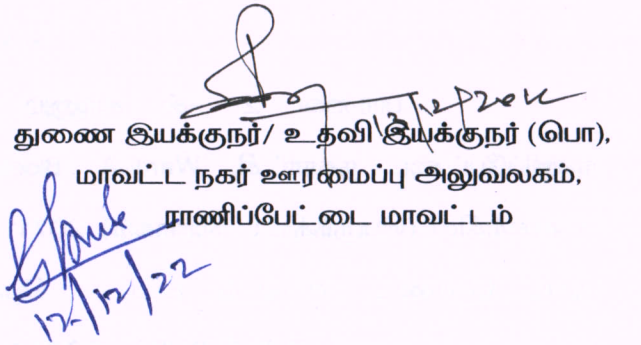 12/12/2022
துணை இயக்குநர்/ உதவி இயக்குநர் (பொ),
மாவட்ட நகர் ஊரமைப்பு அலுவலகம்,
ராணிப்பேட்டை மாவட்டம்
12/12/22